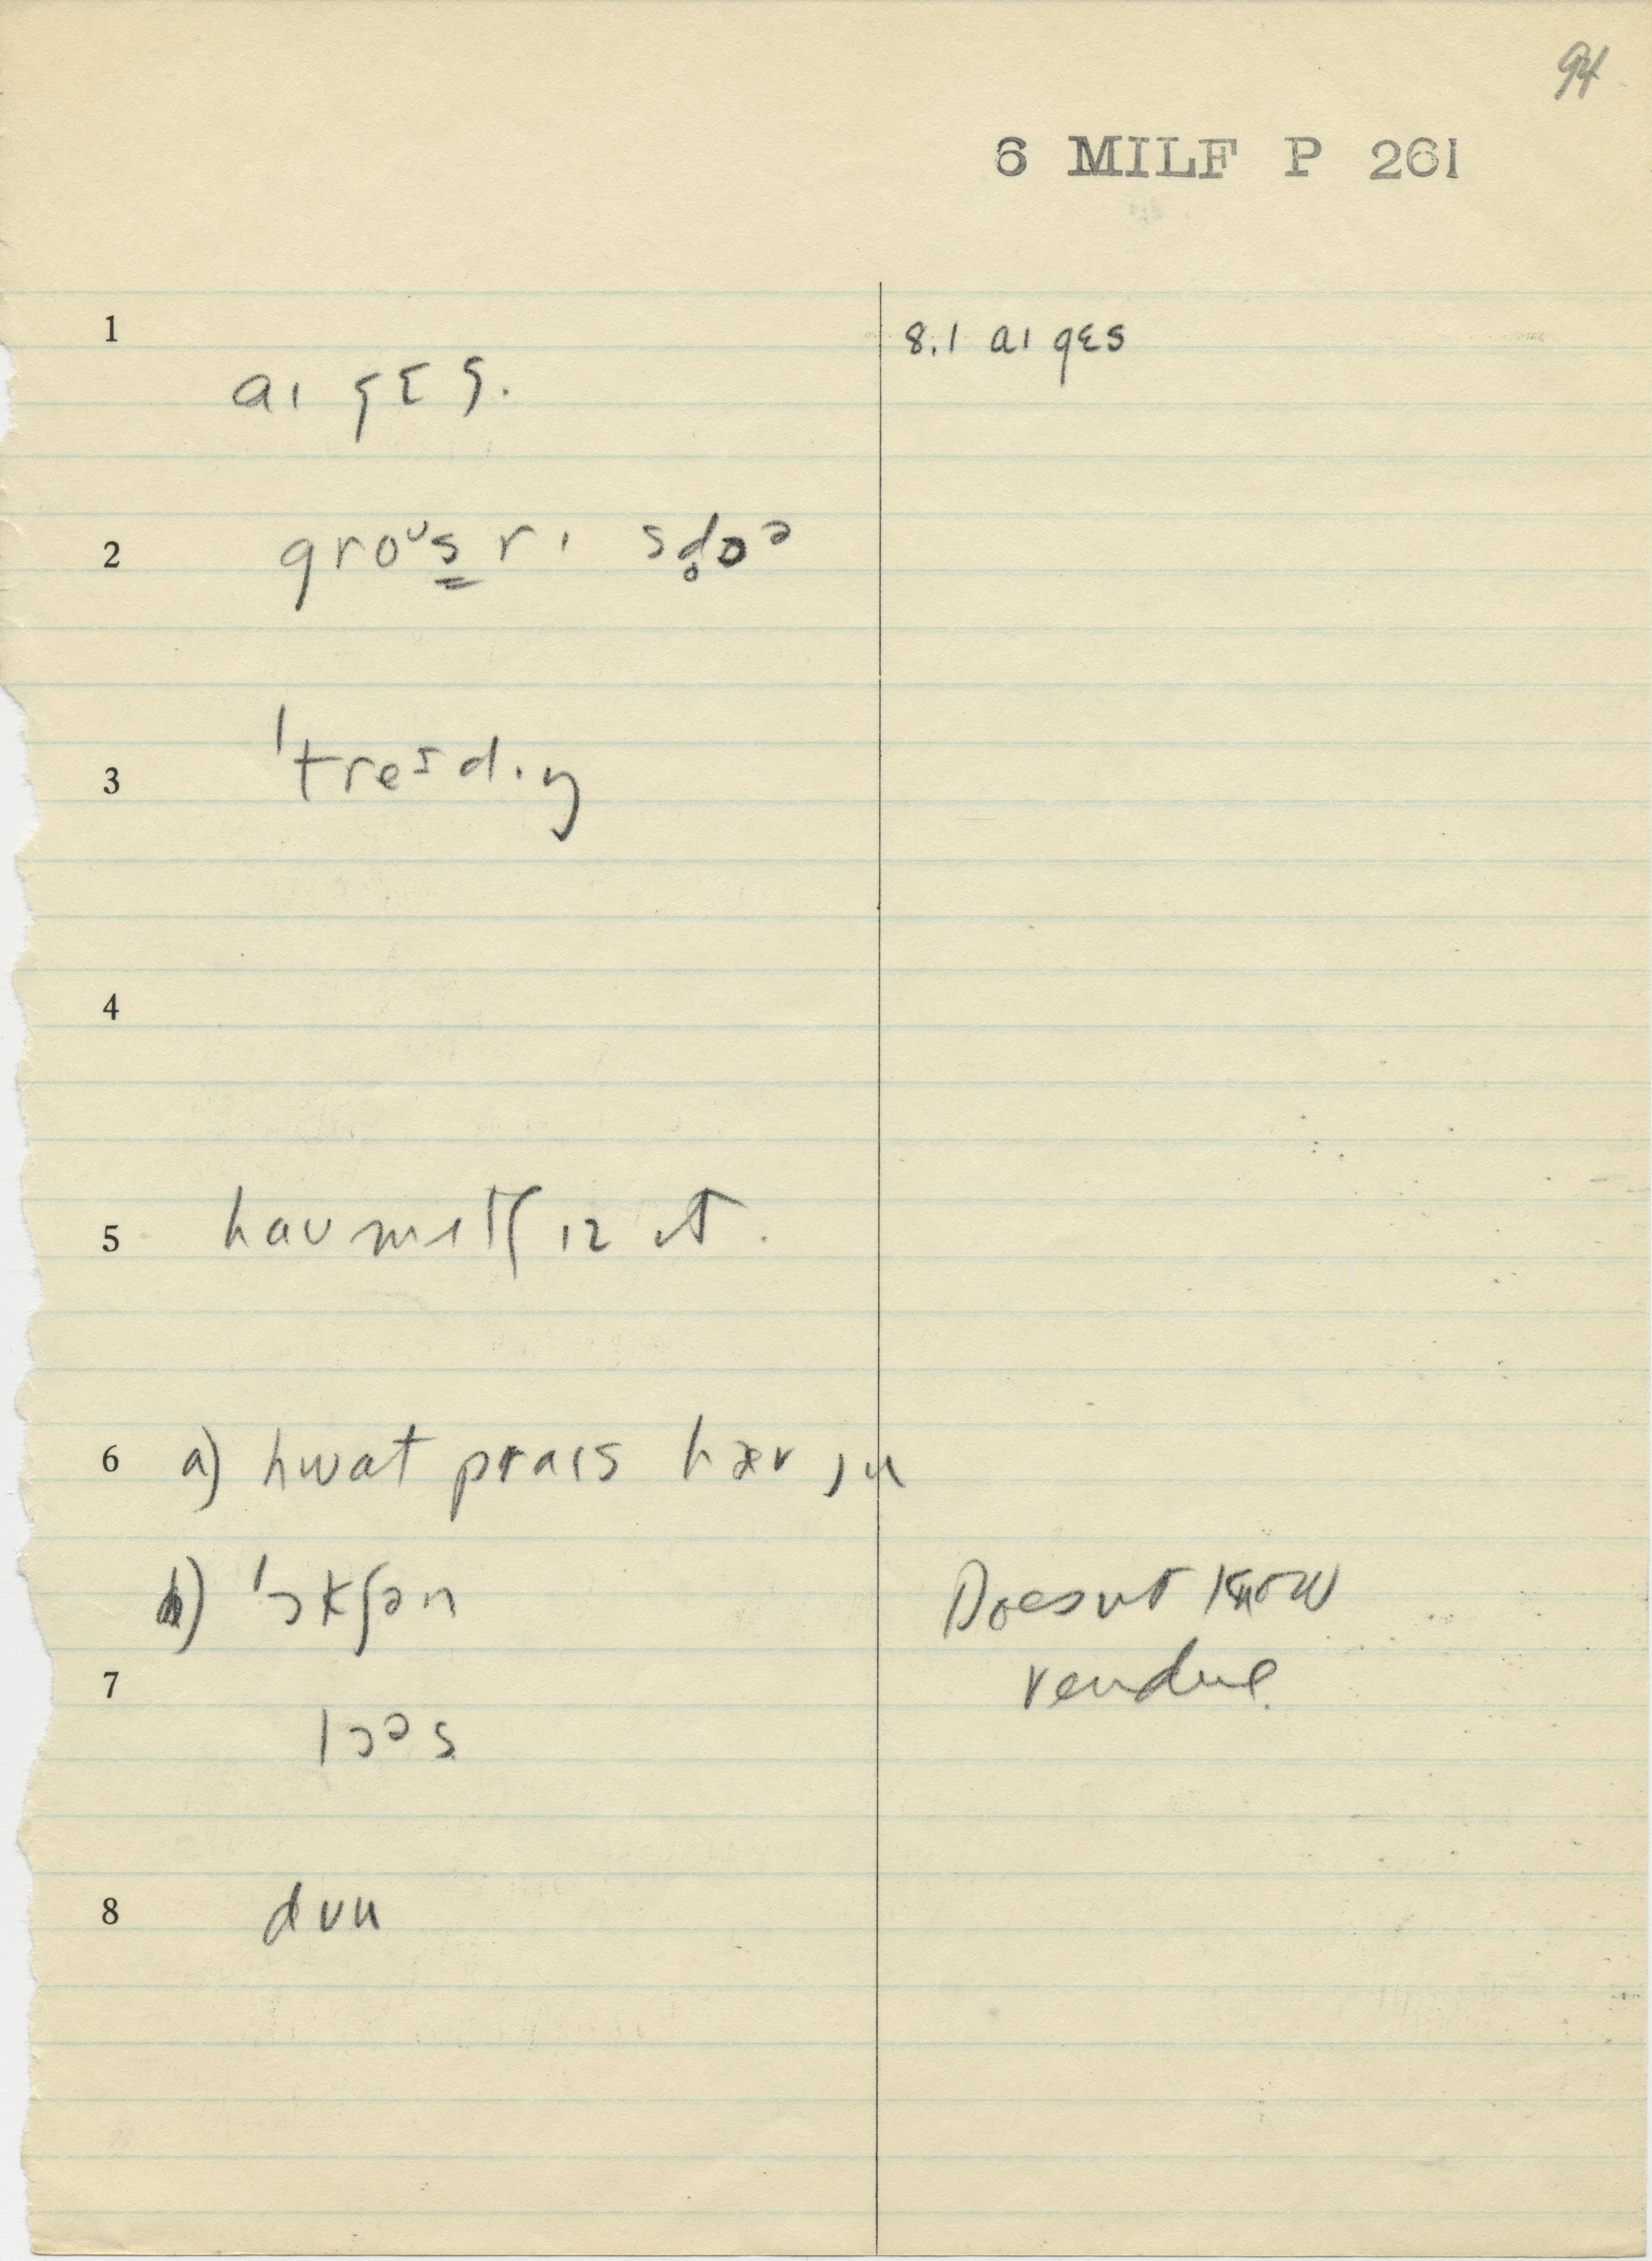 94
6 MILF P 261
1
8.1 aɪ gɛs
aɪ gɛs.
2 groᶷs̳rɪ sd̥ɒᵊ
3 ˈtresdɪŋ
4
5 haʊ mʌtʃ ɪz ɪt.
6 a) hwat praɪs hæv ju
b) ˈɔkʃən
Doesnt know
7
vendue.
lɔᵊs
8 dʊu